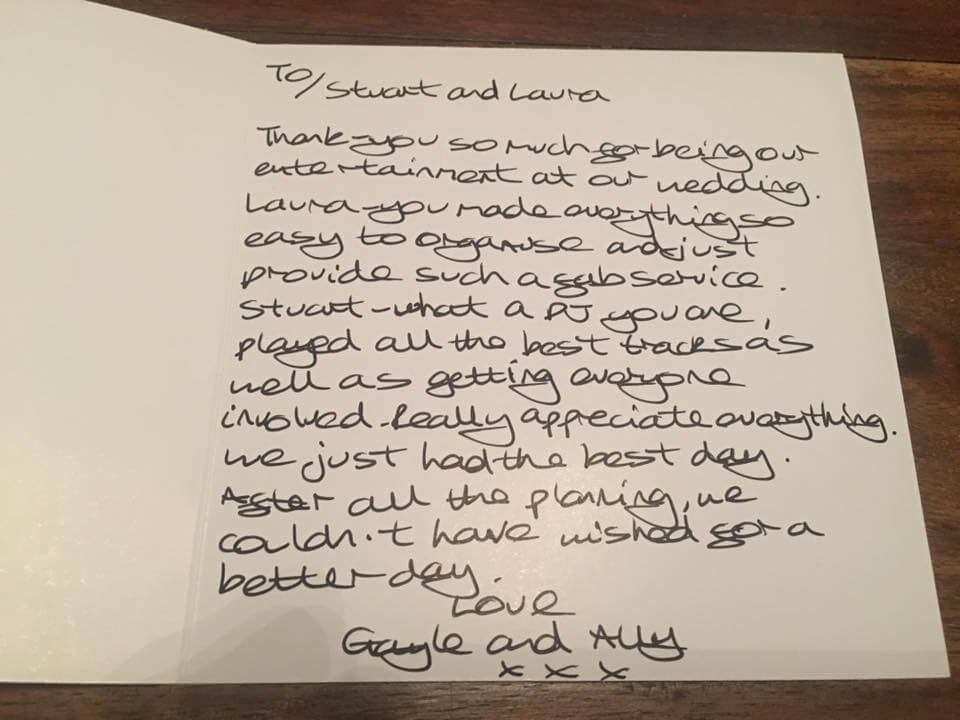 TO/Stuart and Laura
Thank-you so much for being our
entertainment at our wedding.
Laura-you made everything so
easy to organise and just
provide such a fab service.
Stuart-what a DJ you are,
played all the best tracks as
well as getting everyone
involved. Really appreciate everything.
we just had the best day.
After all the planning, we
couldn't have wished for a
better day.
Love
Gayle and Ally
x x x